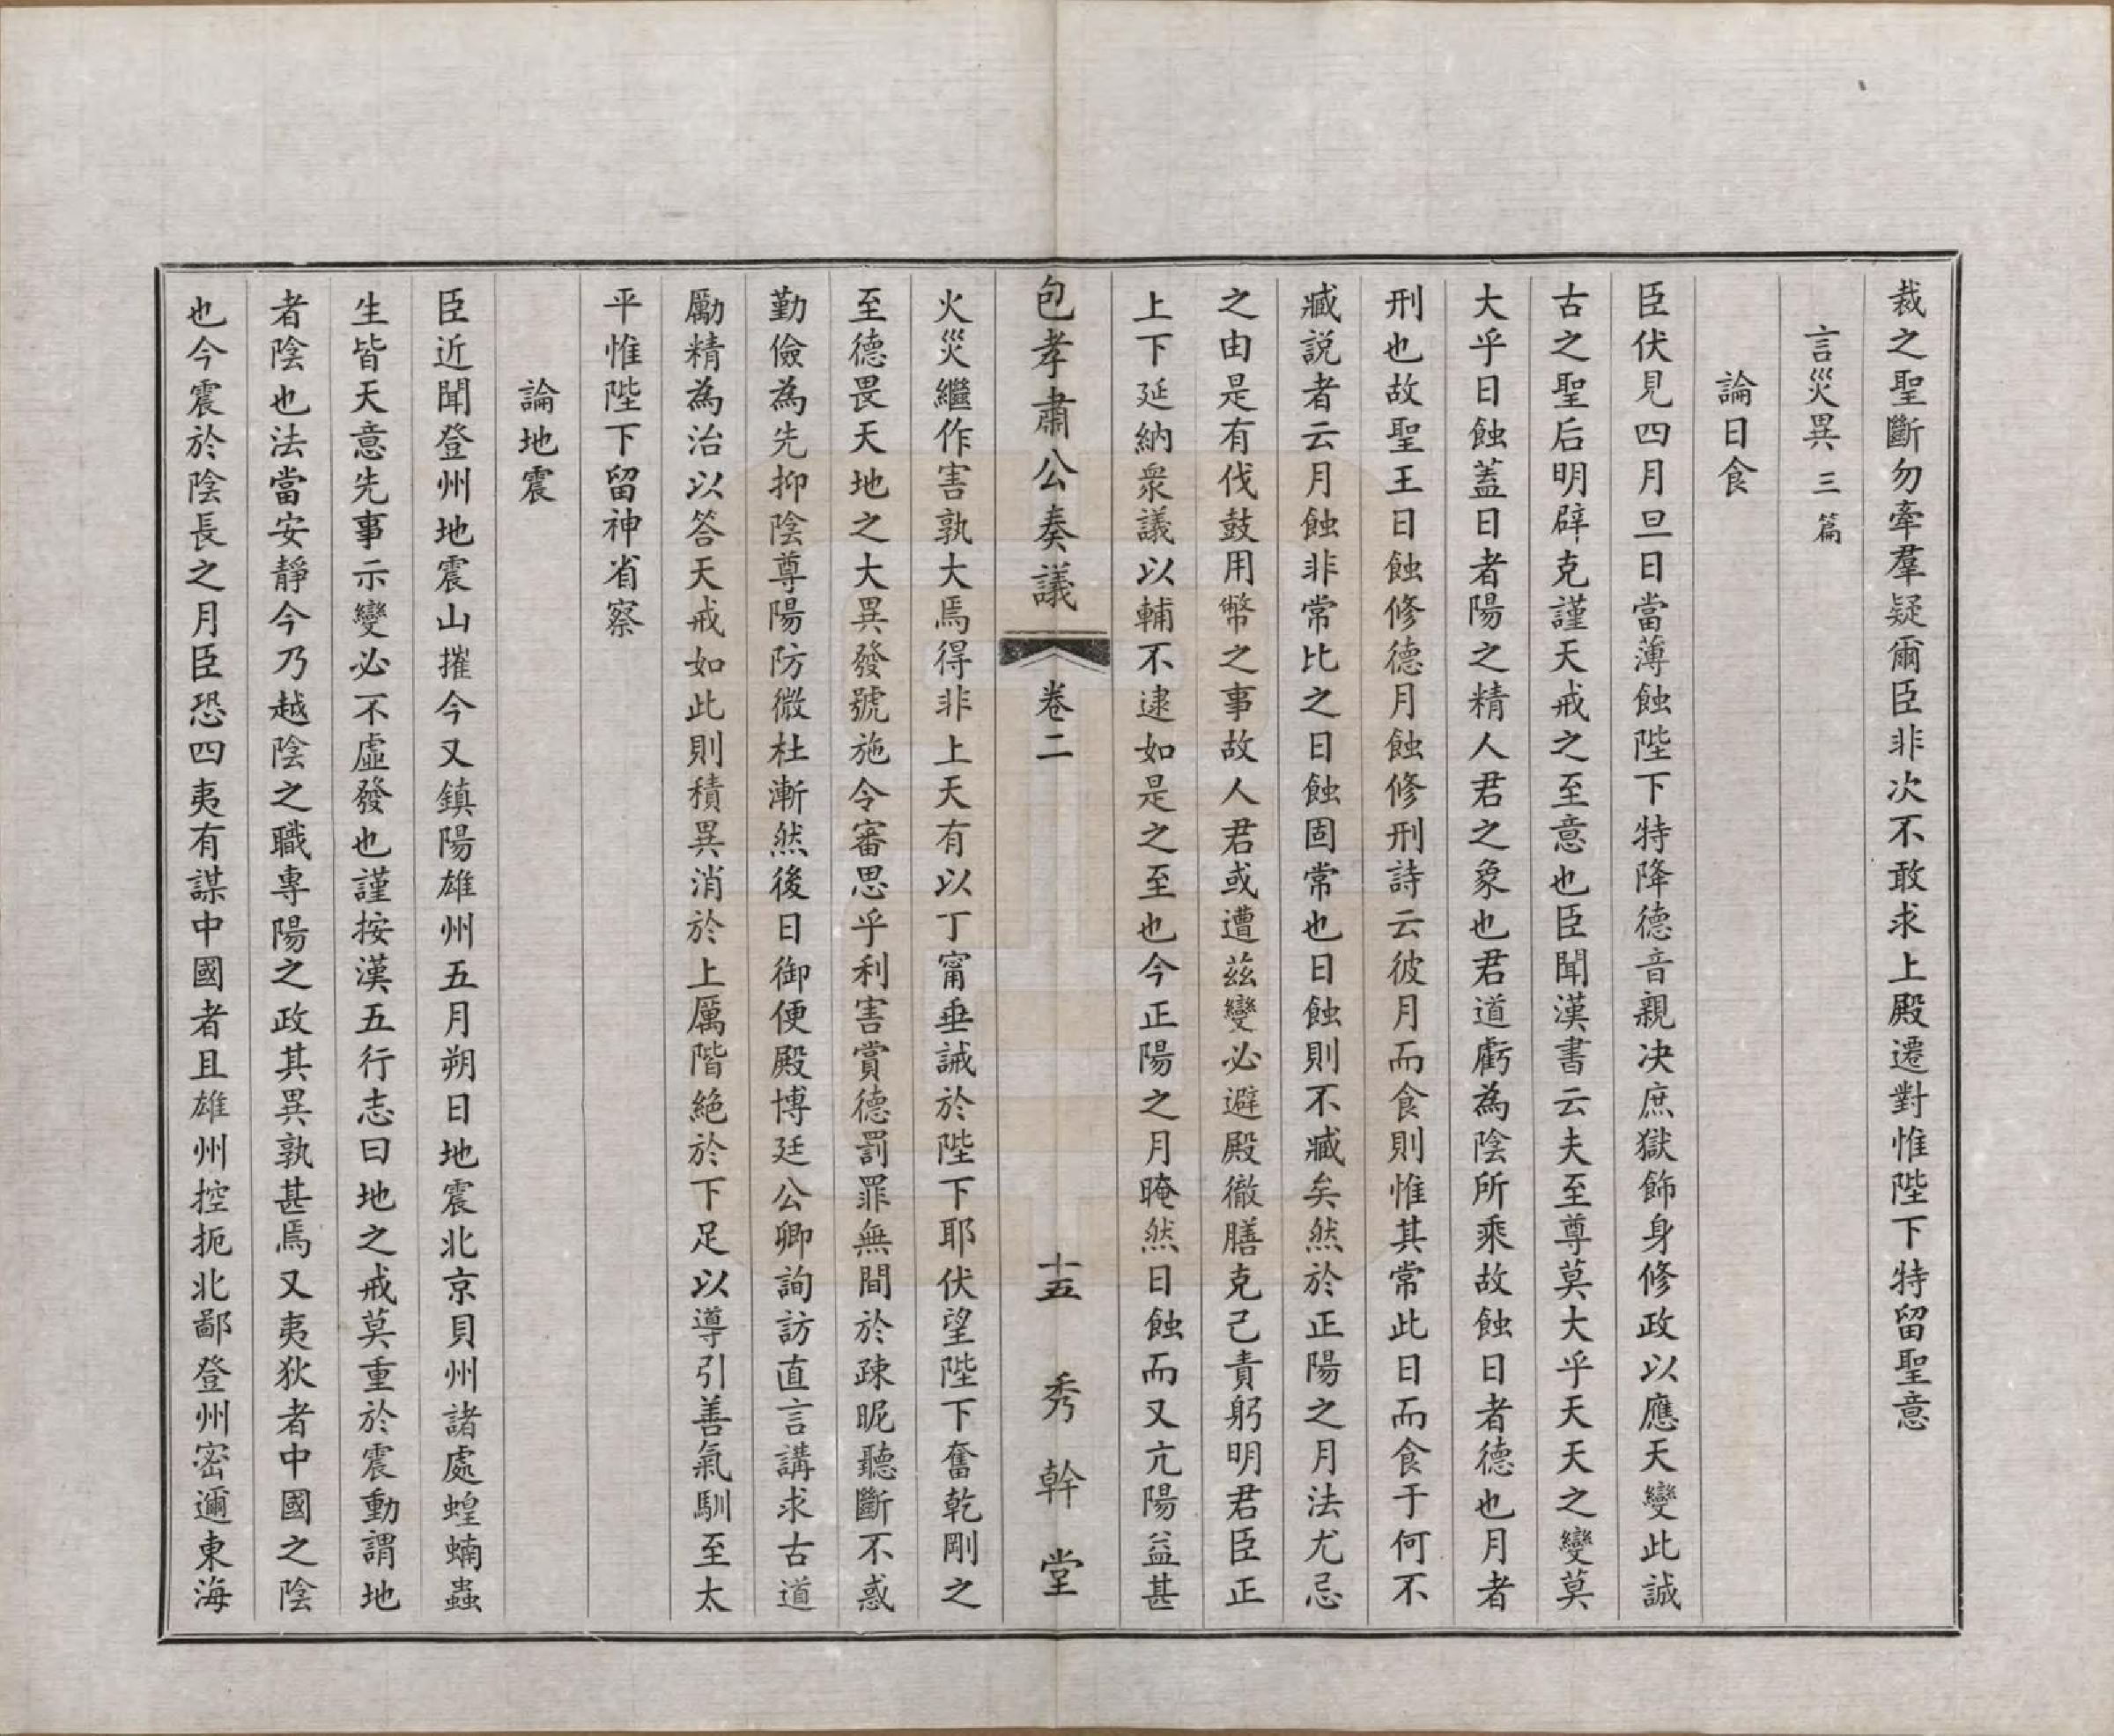 裁之聖斷勿牽羣疑爾臣非次不敢求上殿遷對惟陛下特留聖意
言災異三篇
論日食
臣伏見四月旦日當薄蝕陛下特降德音親决庶獄飾身修政以應天變此誠
古之聖后明辟克謹天戒之至意也臣聞漢書云夫至尊莫大乎天天之變莫
大乎日蝕蓋日者陽之精人君之象也君道虧為陰所乘故蝕日者德也月者
刑也故聖王日蝕修德月蝕修刑詩云彼月而食則惟其常此日而食于何不
臧説者云月蝕非常比之日蝕固常也日蝕則不臧矣然於正陽之月法尤忌
之由是有伐鼓用幣之事故人君或遭茲變必避殿徹膳克己責躬明君臣正
上下延納衆議以輔不逮如是之至也今正陽之月晻然日蝕而又亢陽益甚
包孝肅公奏議 卷二 十五 秀幹堂
火災繼作害孰大焉得非上天有以丁甯垂誡於陛下耶伏望陛下奮乾剛之
至德畏天地之大異發號施令審思乎利害賞德罰罪無間於疎昵聽斷不惑
勤儉為先抑陰尊陽防微杜漸然後日御便殿博廷公卿詢訪直言講求古道
勵精為治以答天戒如此則積異消於上厲階絕於下足以導引善氣馴至太
平惟陛下留神省察
論地震
臣近聞登州地震山摧今又鎮陽雄州五月朔日地震北京貝州諸處蝗蝻蟲
生皆天意先事示變必不虛發也謹按漢五行志曰地之戒莫重於震動謂地
者陰也法當安靜今乃越陰之職專陽之政其異孰甚焉又夷狄者中國之陰
也今震於陰長之月臣恐四夷有謀中國者且雄州控扼北鄙登州密邇東海